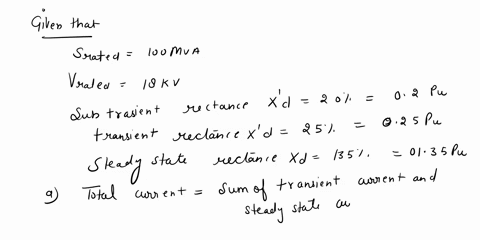 Given that
Srated = 100 MVA
Vraled = 18 KV
Sub trasient rectance X'd = 20% = 0.2 Pu
transient rectance X'd = 25% = 0.25 Pu
Steady state rectance Xd = 135% = 01.35 Pu
a) Total current = Sum of transient current and
steady state cu